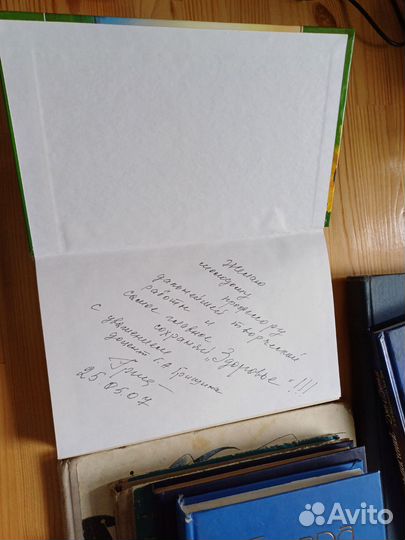 Желаю
молодому профессору
дальнейшей творческой
работы и
самое главное
сохранить „Здоровье"!!!!
с уважением
доцент Г.А. Гришина
25 05.07
Avito